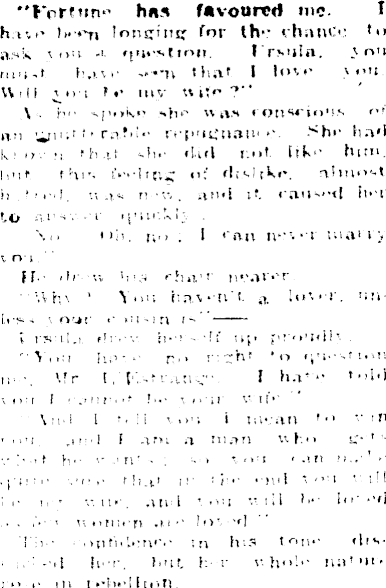 "Fortune has favoured me. I
have been longing for the chance to
ask you a question. Ursula, you
must have seen that I love you.
Will you be my wife?"
As he spoke she was conscious of
an unutterable repugnance. She had
known that she did not like him,
but this feeling of dislike, almost
hatred, was new, and it caused her
to answer quickly:
"No. Oh, no; I can never marry
you."
He drew his chair nearer.
"Why? You haven't a lover, un-
less your cousin is"—
Ursula drew herself up proudly.
"You have no right to question
me, Mr. L'Estrange. I have told
you I cannot be your wife."
"And I tell you I mean to win
you, and I am a man who gets
what he wants; so you can make
quite sure that in the end you will
be my wife, and you will be loved
as few women are loved."
The confidence in his tone
her, but her whole nature
rose in rebellion.